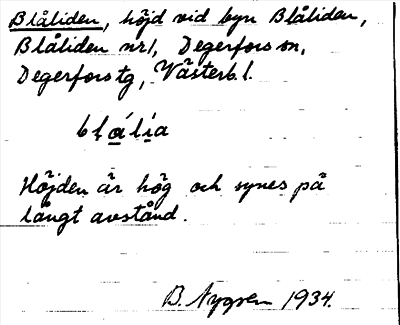 Blåliden, höjd vid byn Blåliden,
Blåliden nr1, Degerfors sn,
Degerfors tg, Västerb. l.
blália
Höjden är hög och synes på
långt avstånd.
B. Nygren 1934.